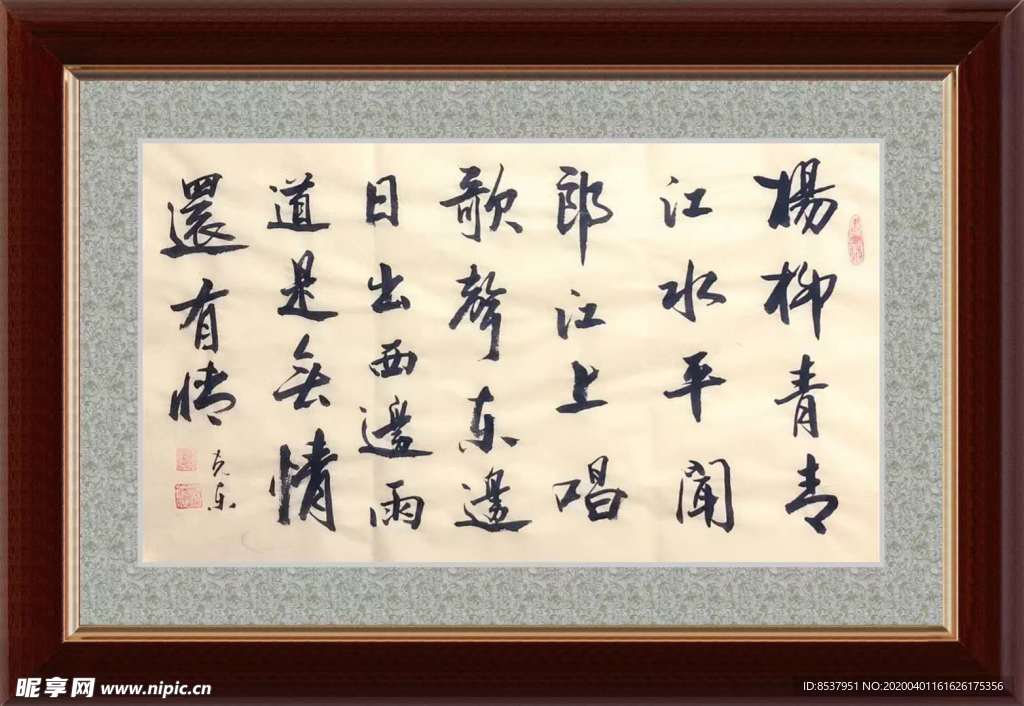 楊柳青青
江水平聞
郎江上唱
歌聲东邊
日出西邊雨
道是無情
還有情
克
昵享网 www.nipic.cn
ID:8537951 NO:20200401161626175356